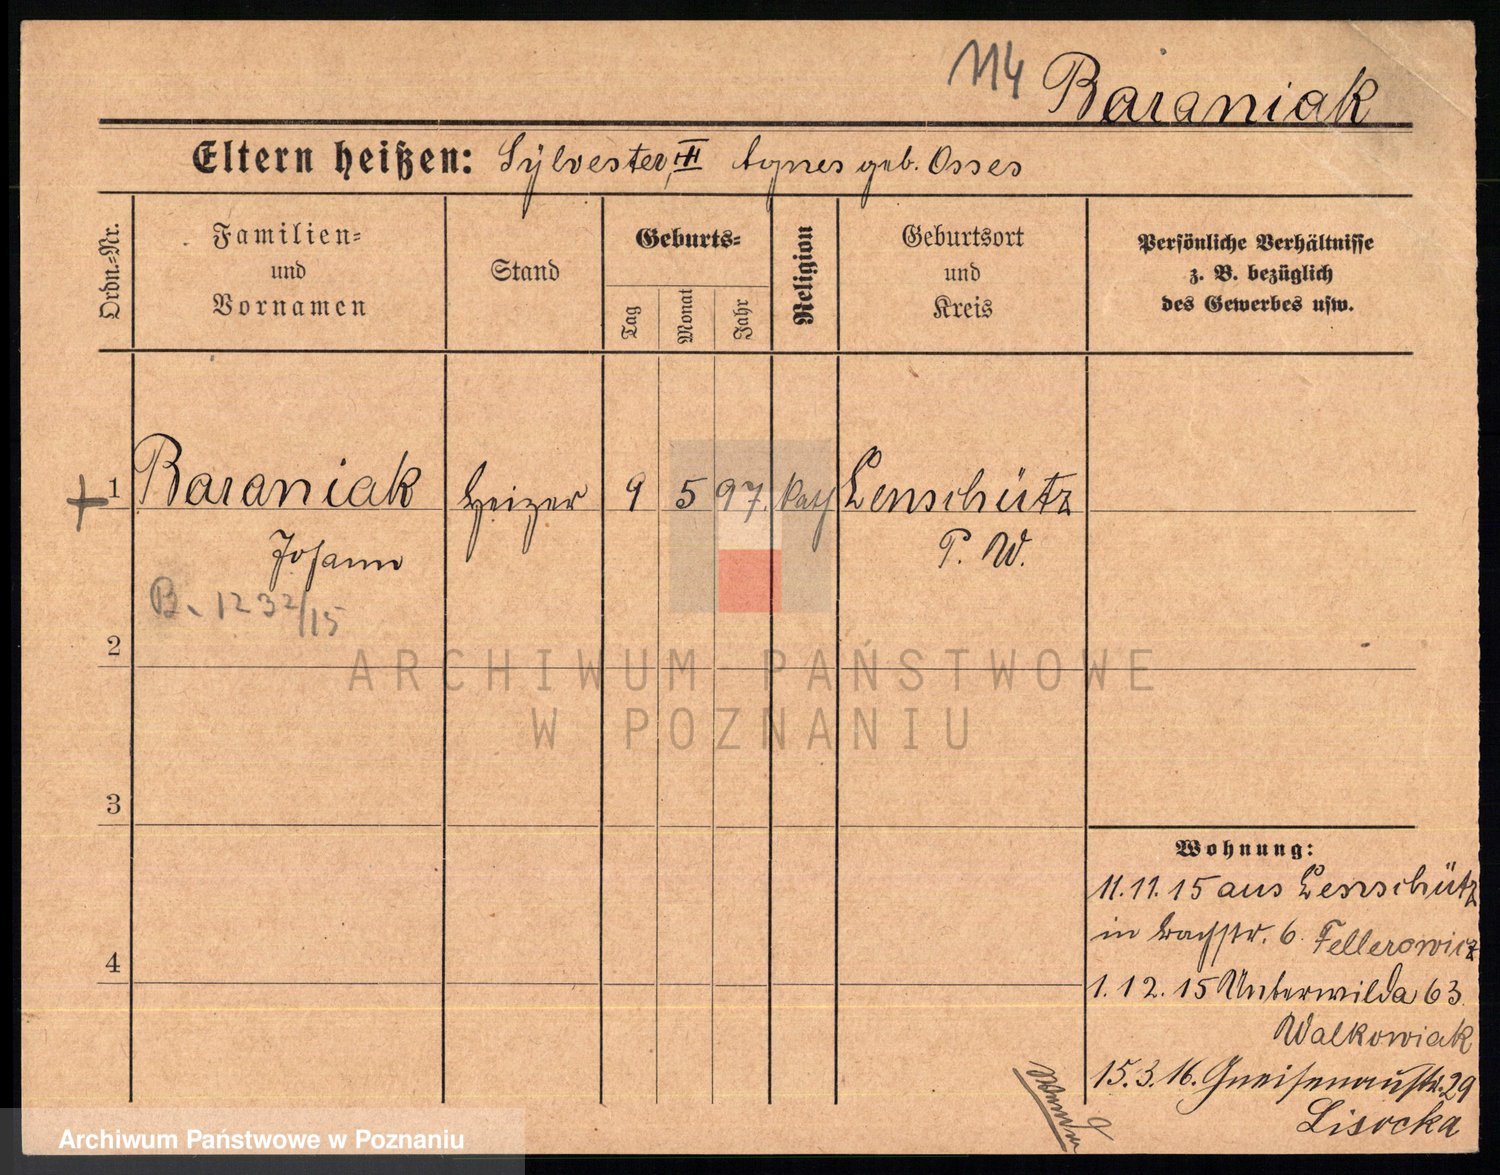 114 Baraniak
Eltern heißen: Sylvester, Agnes geb. Osses
Ordn.-Nr.
Familien-
und
Vornamen
Stand
Geburts-
Tag
Monat
Jahr
Religion
Geburtsort
und
Kreis
Persönliche Verhältnisse
z. B. bezüglich
des Gewerbes usw.
1 Baraniak Heizer 9 5 97. kath Lenschütz
Johann P. W.
B. 1232/15
2
3
4
Wohnung:
11.11.15 aus Lenschütz
in Bachstr. 6. Fellerowicz
1.12.15 Unterwilda 63
Walkowiak
15.3.16. Gneisenaustr. 29
Lisocka
ARCHIWUM PAŃSTWOWE
W POZNANIU
Archiwum Państwowe w Poznaniu